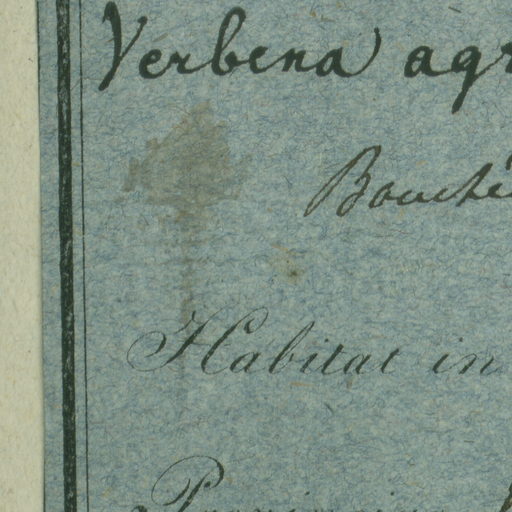 Verbena agr
Bouché
Habitat in